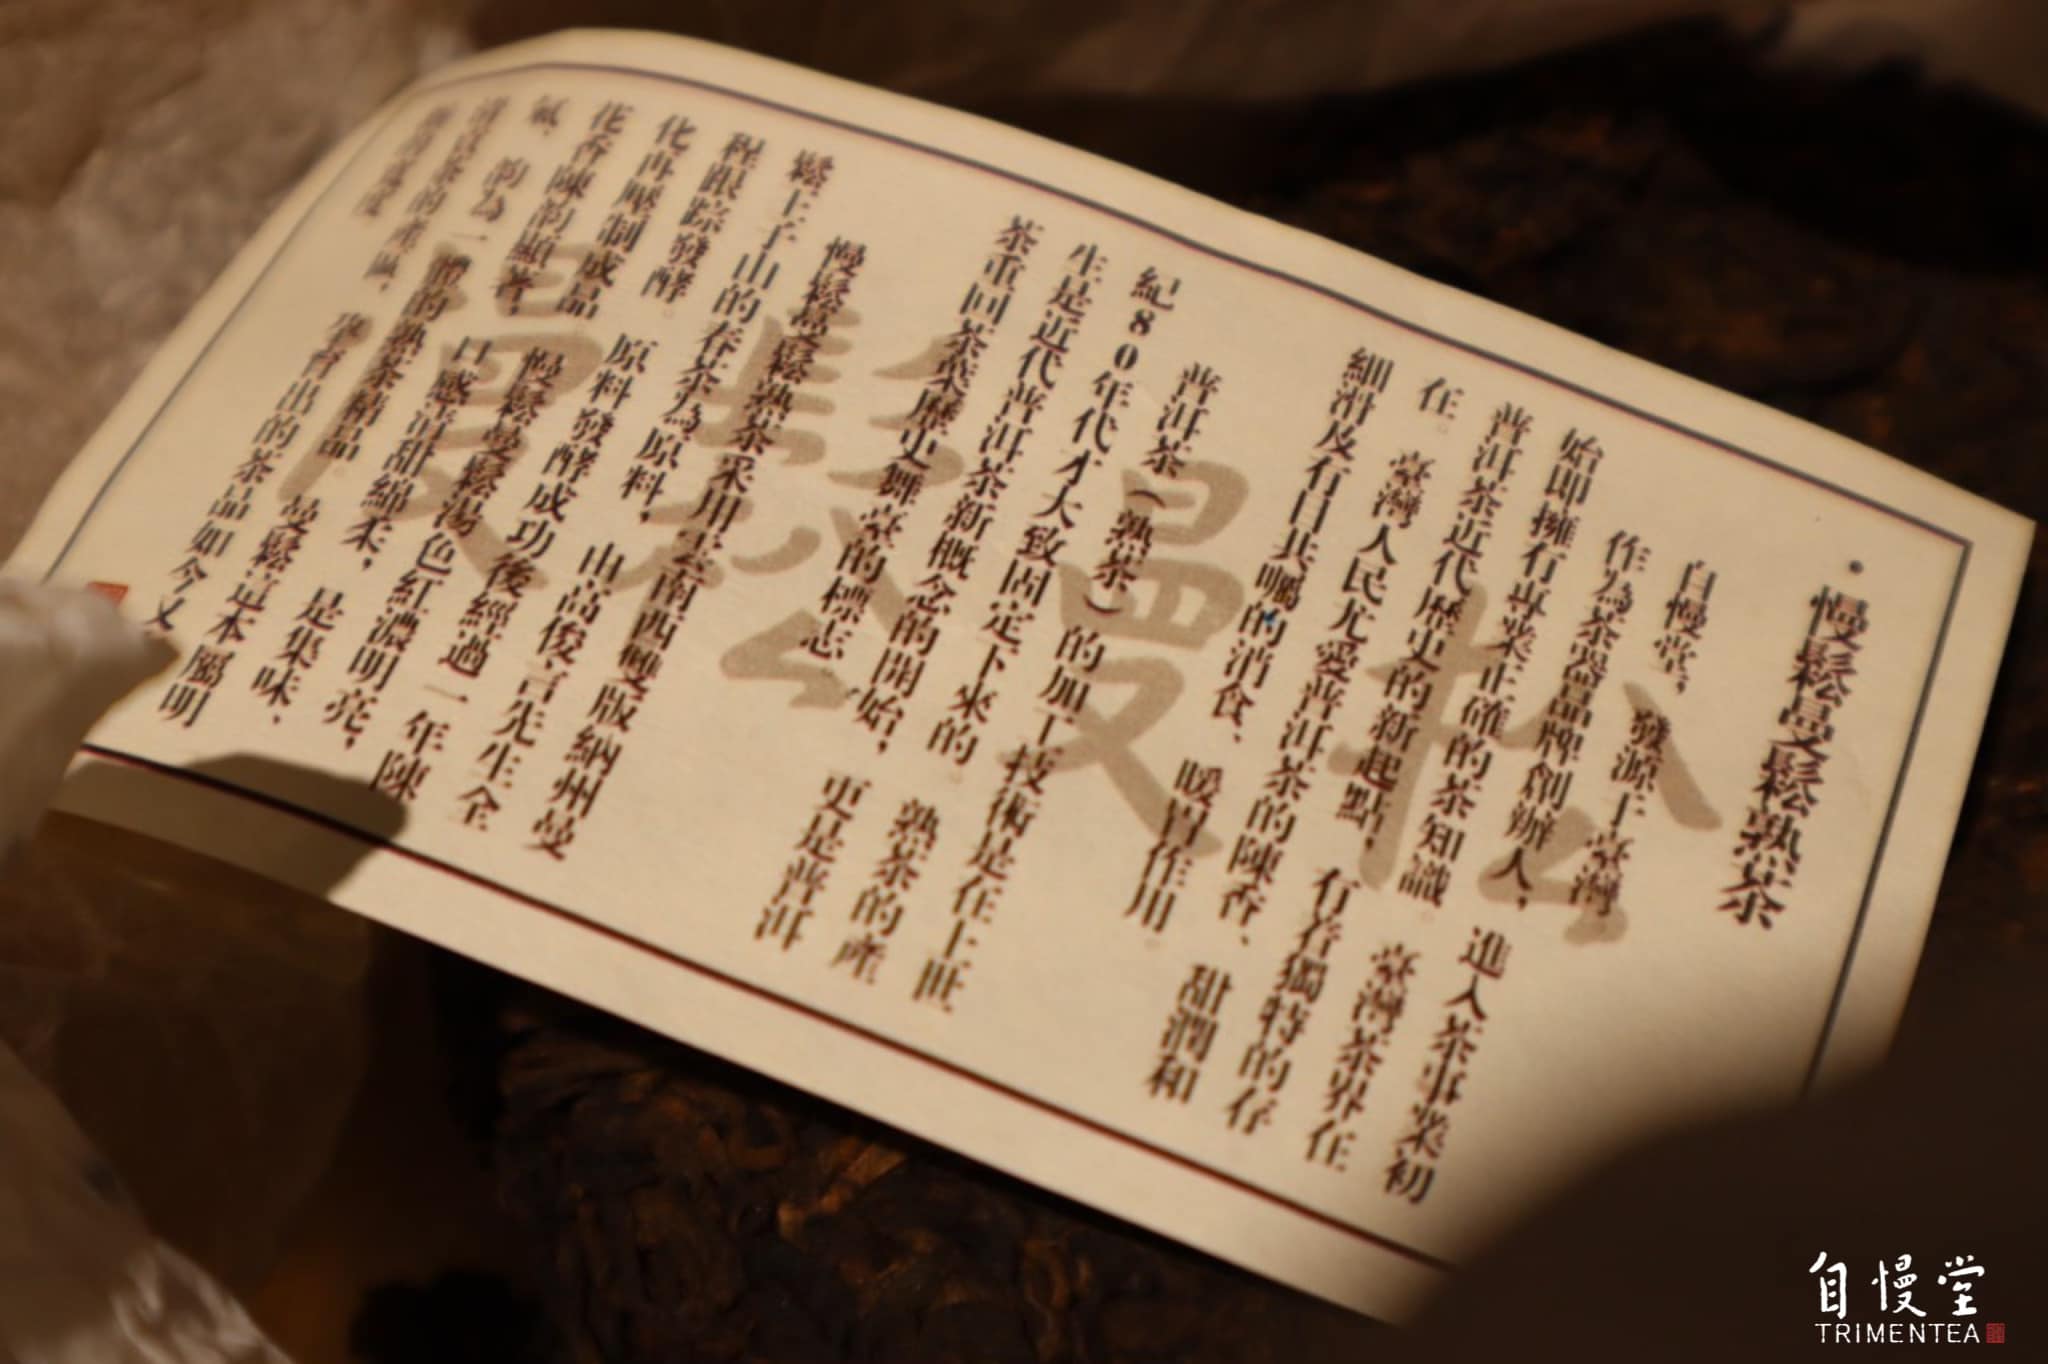 ・慢鬆曼鬆熟茶
自慢堂，發源于臺灣
作為茶與器品牌創辦人，進入茶事業初
始即擁有專業正確的茶知識。臺灣茶界在
普洱茶近代歷史的新起點，有着獨特的存
在。臺灣人民尤愛普洱茶的陳香、甜潤和
細滑及有目共矚的消食、暖胃作用。
普洱茶（熟茶）的加工技術是在上世
紀80年代才大致固定下來的。熟茶的產
生是近代普洱茶新概念的開始，更是普洱
茶重回茶葉歷史舞臺的標志。
慢鬆曼鬆熟茶采用雲南西雙版納州曼
鬆王子山的春茶為原料，由高俊言先生全
程跟踪發酵。原料發酵成功後經過一年陳
化再壓制成品。慢鬆曼鬆湯色紅濃明亮，
花香陳韵顯著，口感甜綿柔，是集味、
氣、韵為一體的熟茶精品。曼鬆這本屬明
清貢茶的產區，孕育出的茶品如今又
自慢堂
TRIMENTEA